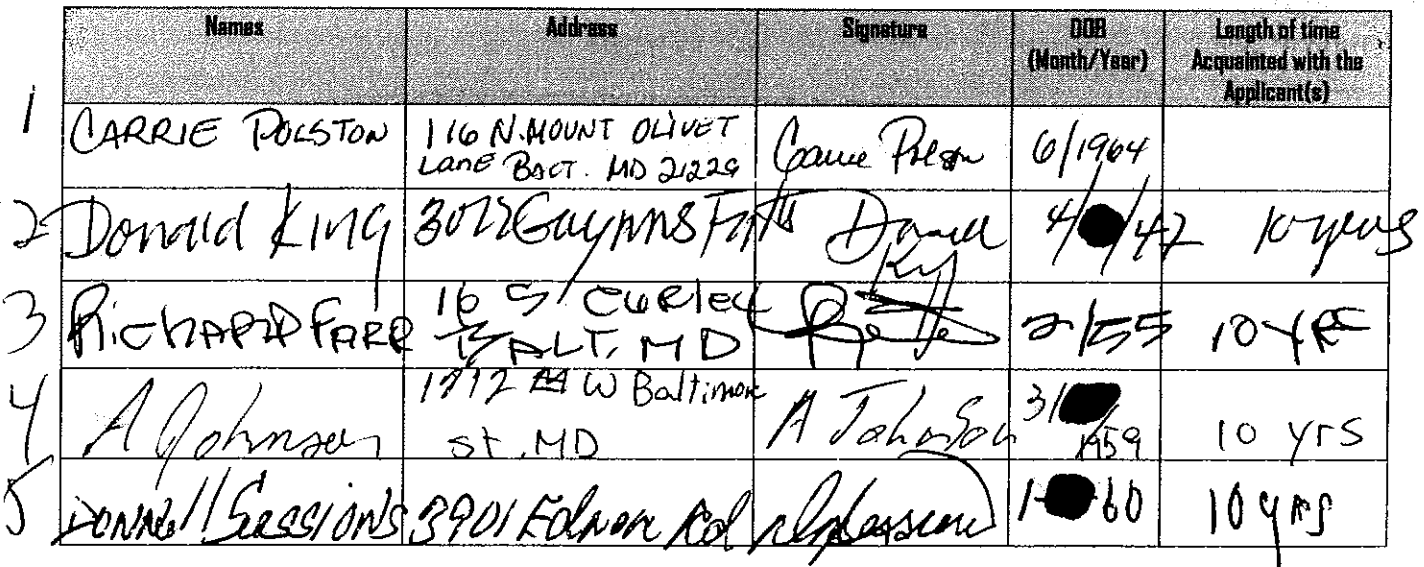 Names Address Signature DOB (Month/Year) Length of time Acquainted with the Applicant(s)
1 CARRIE POLSTON 116 N. MOUNT OLIVET LANE BALT. MD 21229 6/1964
2 Donald King 3012 Gwynns Falls 4/ /47 10 years
3 RICHARD FARR 16 S CURLEY BALT, MD 2/55 10 YRS
4 A Johnson W Baltimore st, MD A Johnson 3/ /1959 10 yrs
5 Donnell Sessions 3901 Rd 1- 60 10 yrs